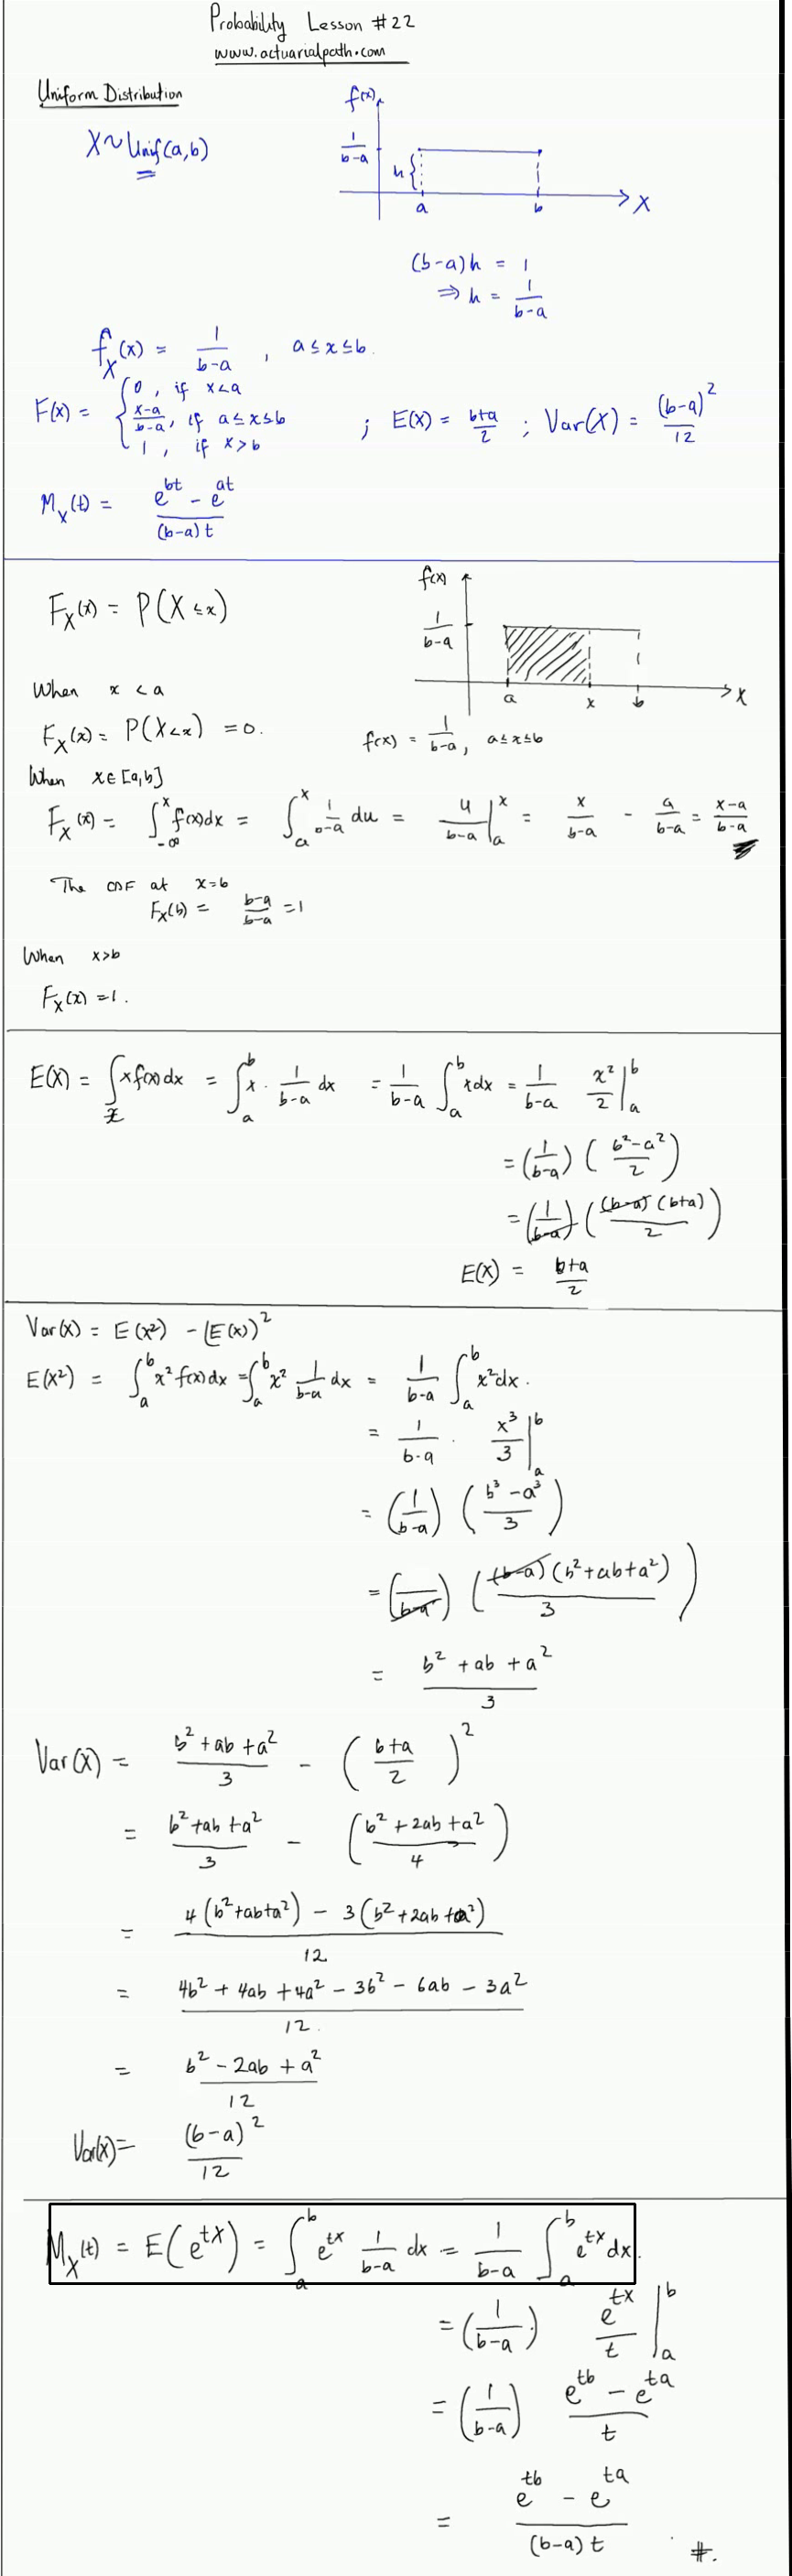 Probability Lesson #22
www.actuarialpath.com
Uniform Distribution
X ~ Unif(a,b)
f(x)
1/(b-a)
h {
a b X
(b-a)h = 1
⇒ h = 1/(b-a)
f_X(x) = 1/(b-a) , a ≤ x ≤ b.
F(x) = { 0 , if x<a
(x-a)/(b-a), if a ≤ x ≤ b
1 , if x > b
; E(X) = (b+a)/2 ; Var(X) = (b-a)^2/12
M_X(t) = (e^bt - e^at)/((b-a)t)
F_X(x) = P(X ≤ x)
f(x)
1/(b-a)
a x b X
f(x) = 1/(b-a), a ≤ x ≤ b
When x < a
F_X(x) = P(X<x) = 0.
When x ∈ [a,b]
F_X(x) = ∫_{-∞}^x f(x)dx = ∫_a^x 1/(b-a) du = u/(b-a) |_a^x = x/(b-a) - a/(b-a) = (x-a)/(b-a)
The CDF at x=b
F_X(b) = (b-a)/(b-a) = 1
When x>b
F_X(x) = 1.
E(X) = ∫_x x f(x) dx = ∫_a^b x · 1/(b-a) dx = 1/(b-a) ∫_a^b x dx = 1/(b-a) x^2/2 |_a^b
= (1/(b-a)) ((b^2-a^2)/2)
= (1/(b-a)) ((b-a)(b+a)/2)
E(X) = (b+a)/2
Var(X) = E(X^2) - (E(X))^2
E(X^2) = ∫_a^b x^2 f(x) dx = ∫_a^b x^2 1/(b-a) dx = 1/(b-a) ∫_a^b x^2 dx.
= 1/(b-a) · x^3/3 |_a^b
= (1/(b-a)) ((b^3 - a^3)/3)
= (1/(b-a)) ((b-a)(b^2+ab+a^2)/3)
= (b^2 + ab + a^2)/3
Var(X) = (b^2 + ab + a^2)/3 - ((b+a)/2)^2
= (b^2 + ab + a^2)/3 - ((b^2 + 2ab + a^2)/4)
= (4(b^2+ab+a^2) - 3(b^2+2ab+a^2))/12
= (4b^2 + 4ab + 4a^2 - 3b^2 - 6ab - 3a^2)/12.
= (b^2 - 2ab + a^2)/12
Var(X) = (b-a)^2/12
M_X(t) = E(e^tX) = ∫_a^b e^tx 1/(b-a) dx = 1/(b-a) ∫_a^b e^tx dx.
= (1/(b-a)) e^tx/t |_a^b
= (1/(b-a)) (e^tb - e^ta)/t
= (e^tb - e^ta)/((b-a)t) #.